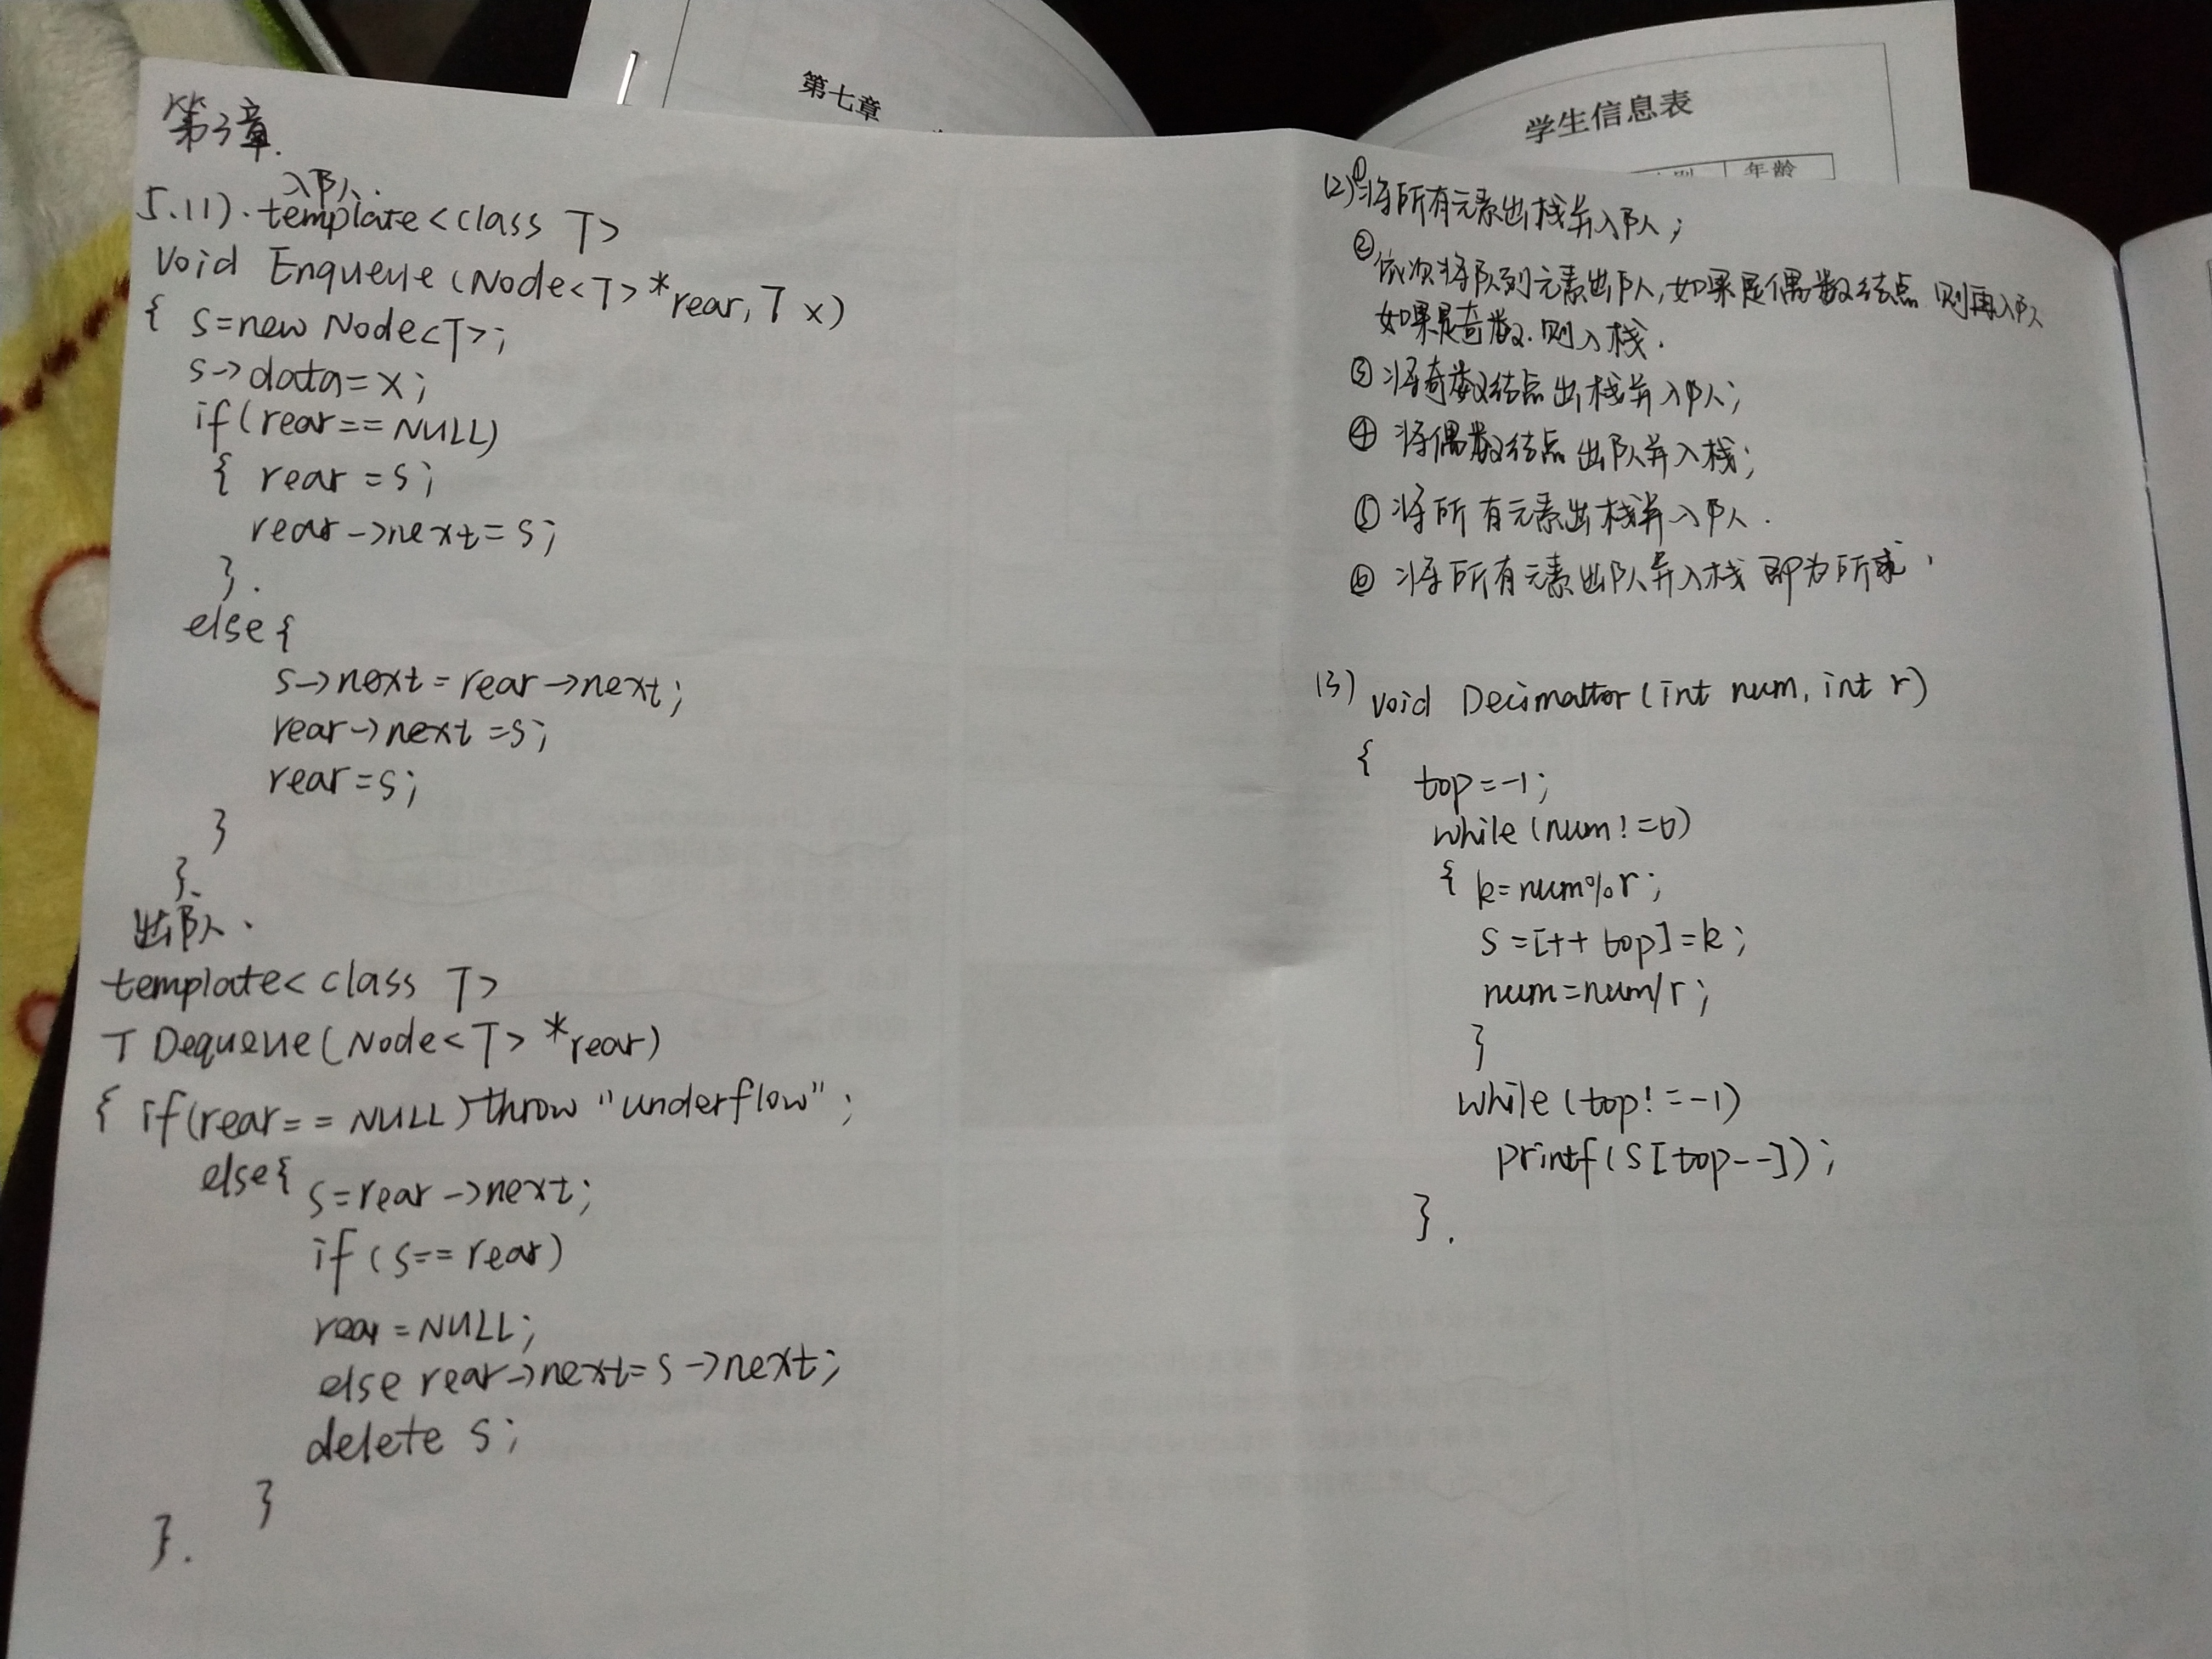 第七章
学生信息表
年龄
第3章.
入队.
5.(1). template<class T>
void Enqueue(Node<T> *rear, T x)
{ s=new Node<T>;
s->data=x;
if(rear==NULL)
{ rear=s;
rear->next=s;
}.
else{
s->next=rear->next;
rear->next=s;
rear=s;
}
}.
出队.
template<class T>
T Dequeue(Node<T> *rear)
{ if(rear==NULL) throw "underflow";
else{ s=rear->next;
if(s==rear)
rear=NULL;
else rear->next=s->next;
delete s;
}
}.
(2)①将所有元素出栈并入队;
②依次将队列元素出队,如果是偶数结点 则再入队
如果是奇数.则入栈.
③将奇数结点出栈并入队;
④将偶数结点出队并入栈;
⑤将所有元素出栈并入队.
⑥将所有元素出队并入栈 即为所求.
(3) void Decimaltor(int num, int r)
{
top=-1;
while(num!=0)
{ k=num%r;
S=[++top]=k;
num=num/r;
}
while(top!=-1)
printf(S[top--]);
}.